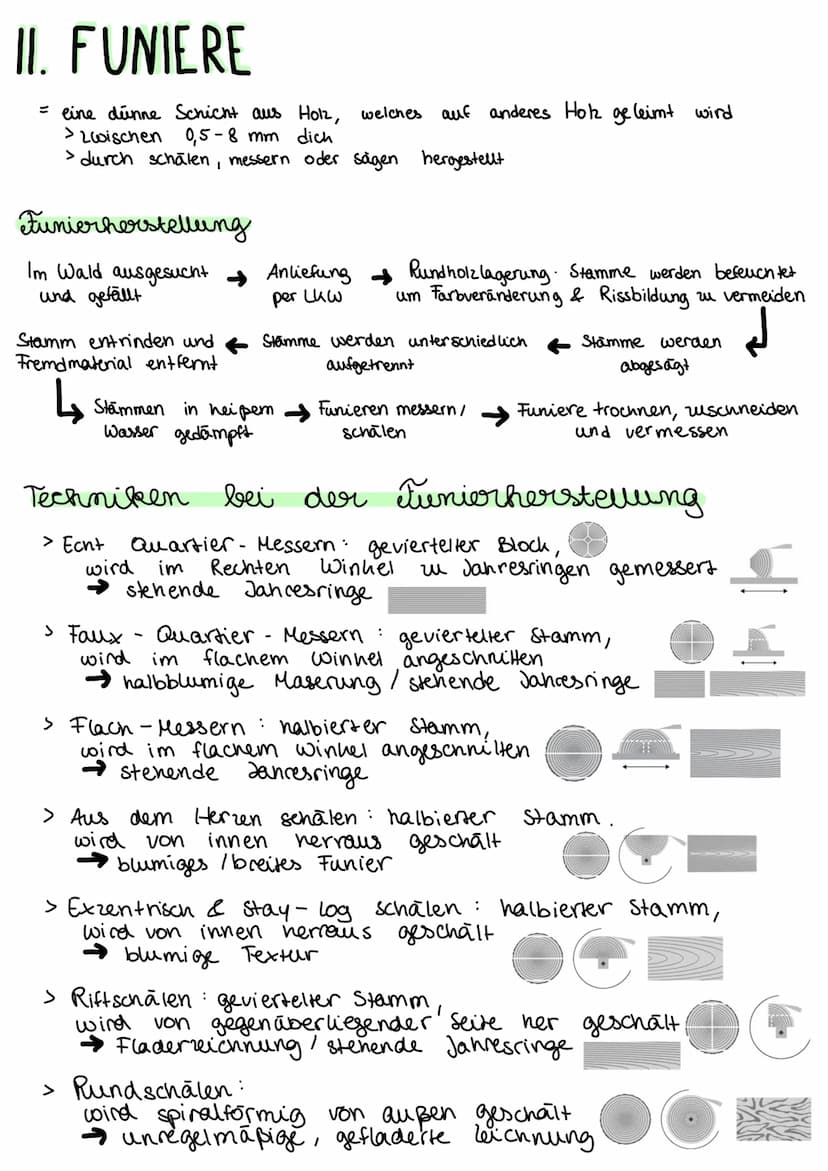 II. FUNIERE
= eine dünne Schicht aus Holz, welches auf anderes Holz geleimt wird
> zwischen 0,5-8 mm dich
> durch schälen, messern oder sägen hergestellt
Funierherstellung
Im Wald ausgesucht → Anliefung → Rundholzlagerung. Stämme werden befeuchtet
und gefällt per LKW um Farbveränderung & Rissbildung zu vermeiden
Stamm entrinden und ← Stämme werden unterschiedlich ← Stämme werden
Fremdmaterial entfernt aufgetrennt abgesägt
Stämmen in heißem → Funieren messern/ → Funiere trochnen, zuschneiden
Wasser gedämpft schälen und vermessen
Techniken bei der Funierherstellung
> Echt Quartier-Messern: gevierteller Block,
wird im Rechten Winkel zu Jahresringen gemessert
→ stehende Jahresringe
> Faux - Quartier - Messern: gevierteter Stamm,
wird im flachem Winkel angeschnitten
→ halbblumige Maserung / stehende Jahresringe
> Flach-Messern: halbierter Stamm,
wird im flachem Winkel angeschnitten
→ stehende Jahresringe
> Aus dem Herzen schälen: halbierter Stamm.
wird von innen herraus geschält
→ blumiges/breites Funier
> Exzentrisch & Stay-log schälen: halbierter Stamm,
wird von innen herraus geschält
→ blumige Textur
> Riftschälen: gevierteller Stamm,
wird von gegenüberliegender Seite her geschält
→ Fladerzeichnung / stehende Jahresringe
> Rundschälen:
wird spiralförmig von außen geschält
→ unregelmäßige, gefladerte Zeichnung